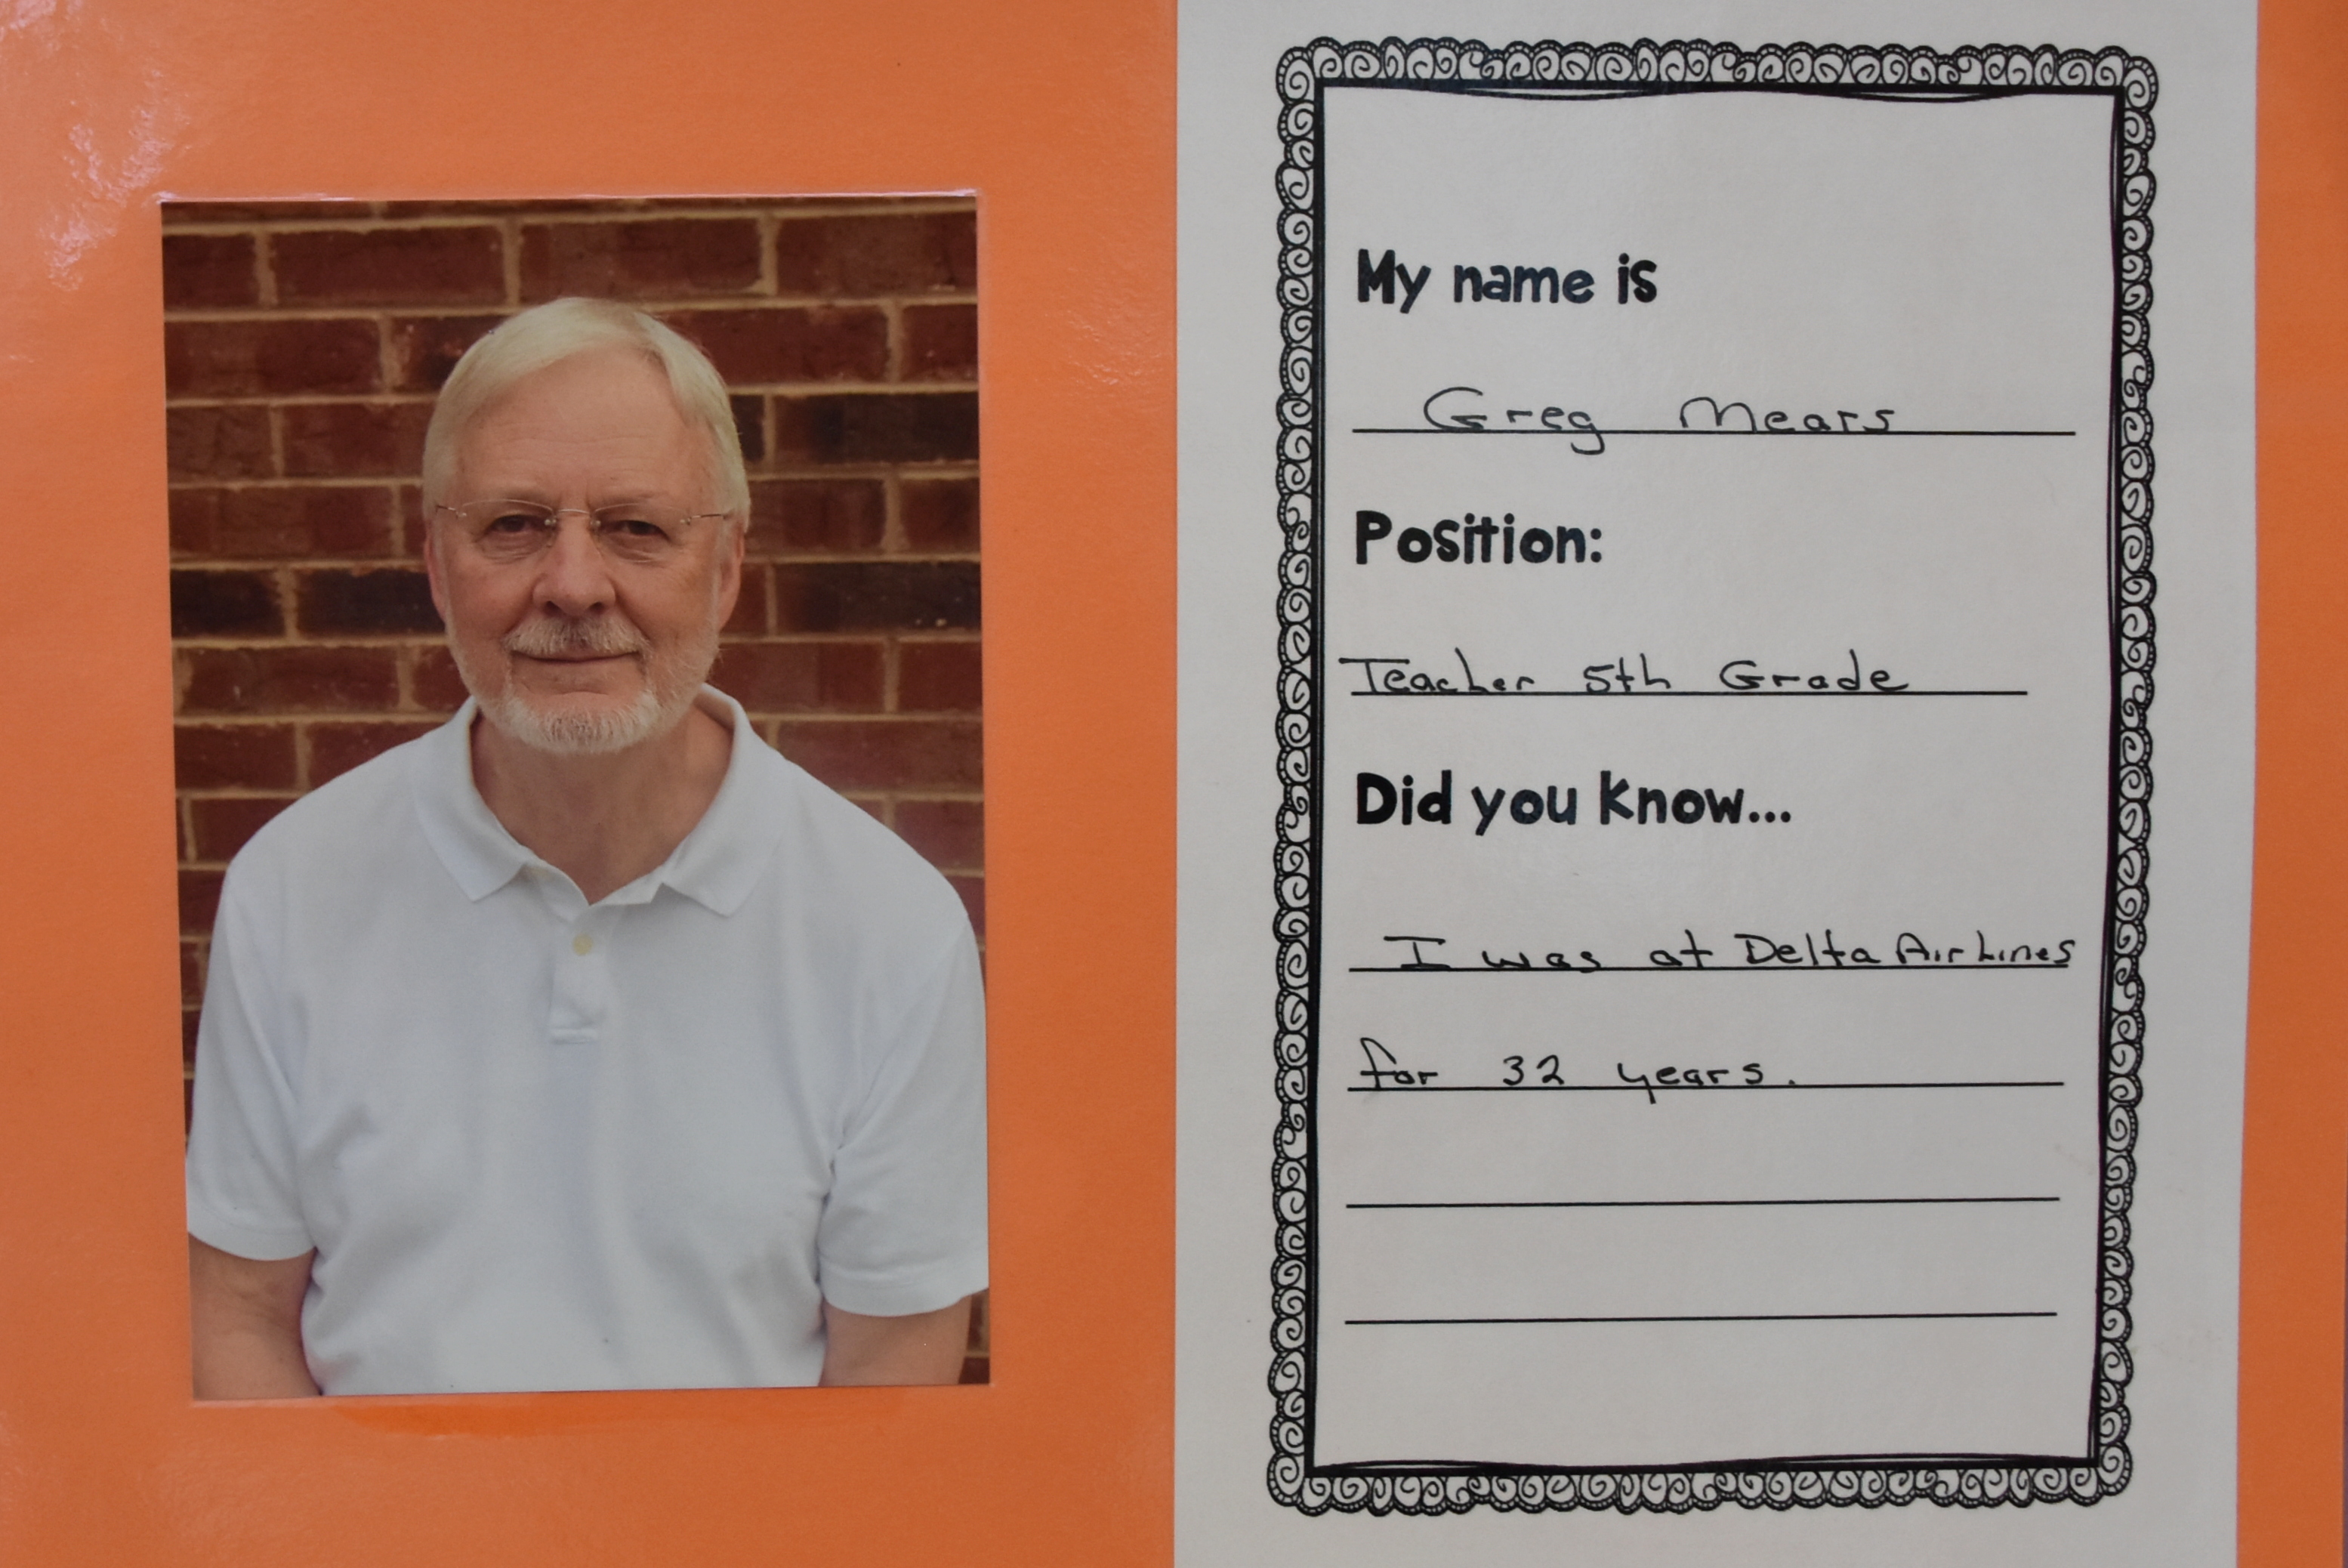 My name is
Greg Mears
Position:
Teacher 5th Grade
Did you know...
I was at Delta Air Lines
for 32 years.